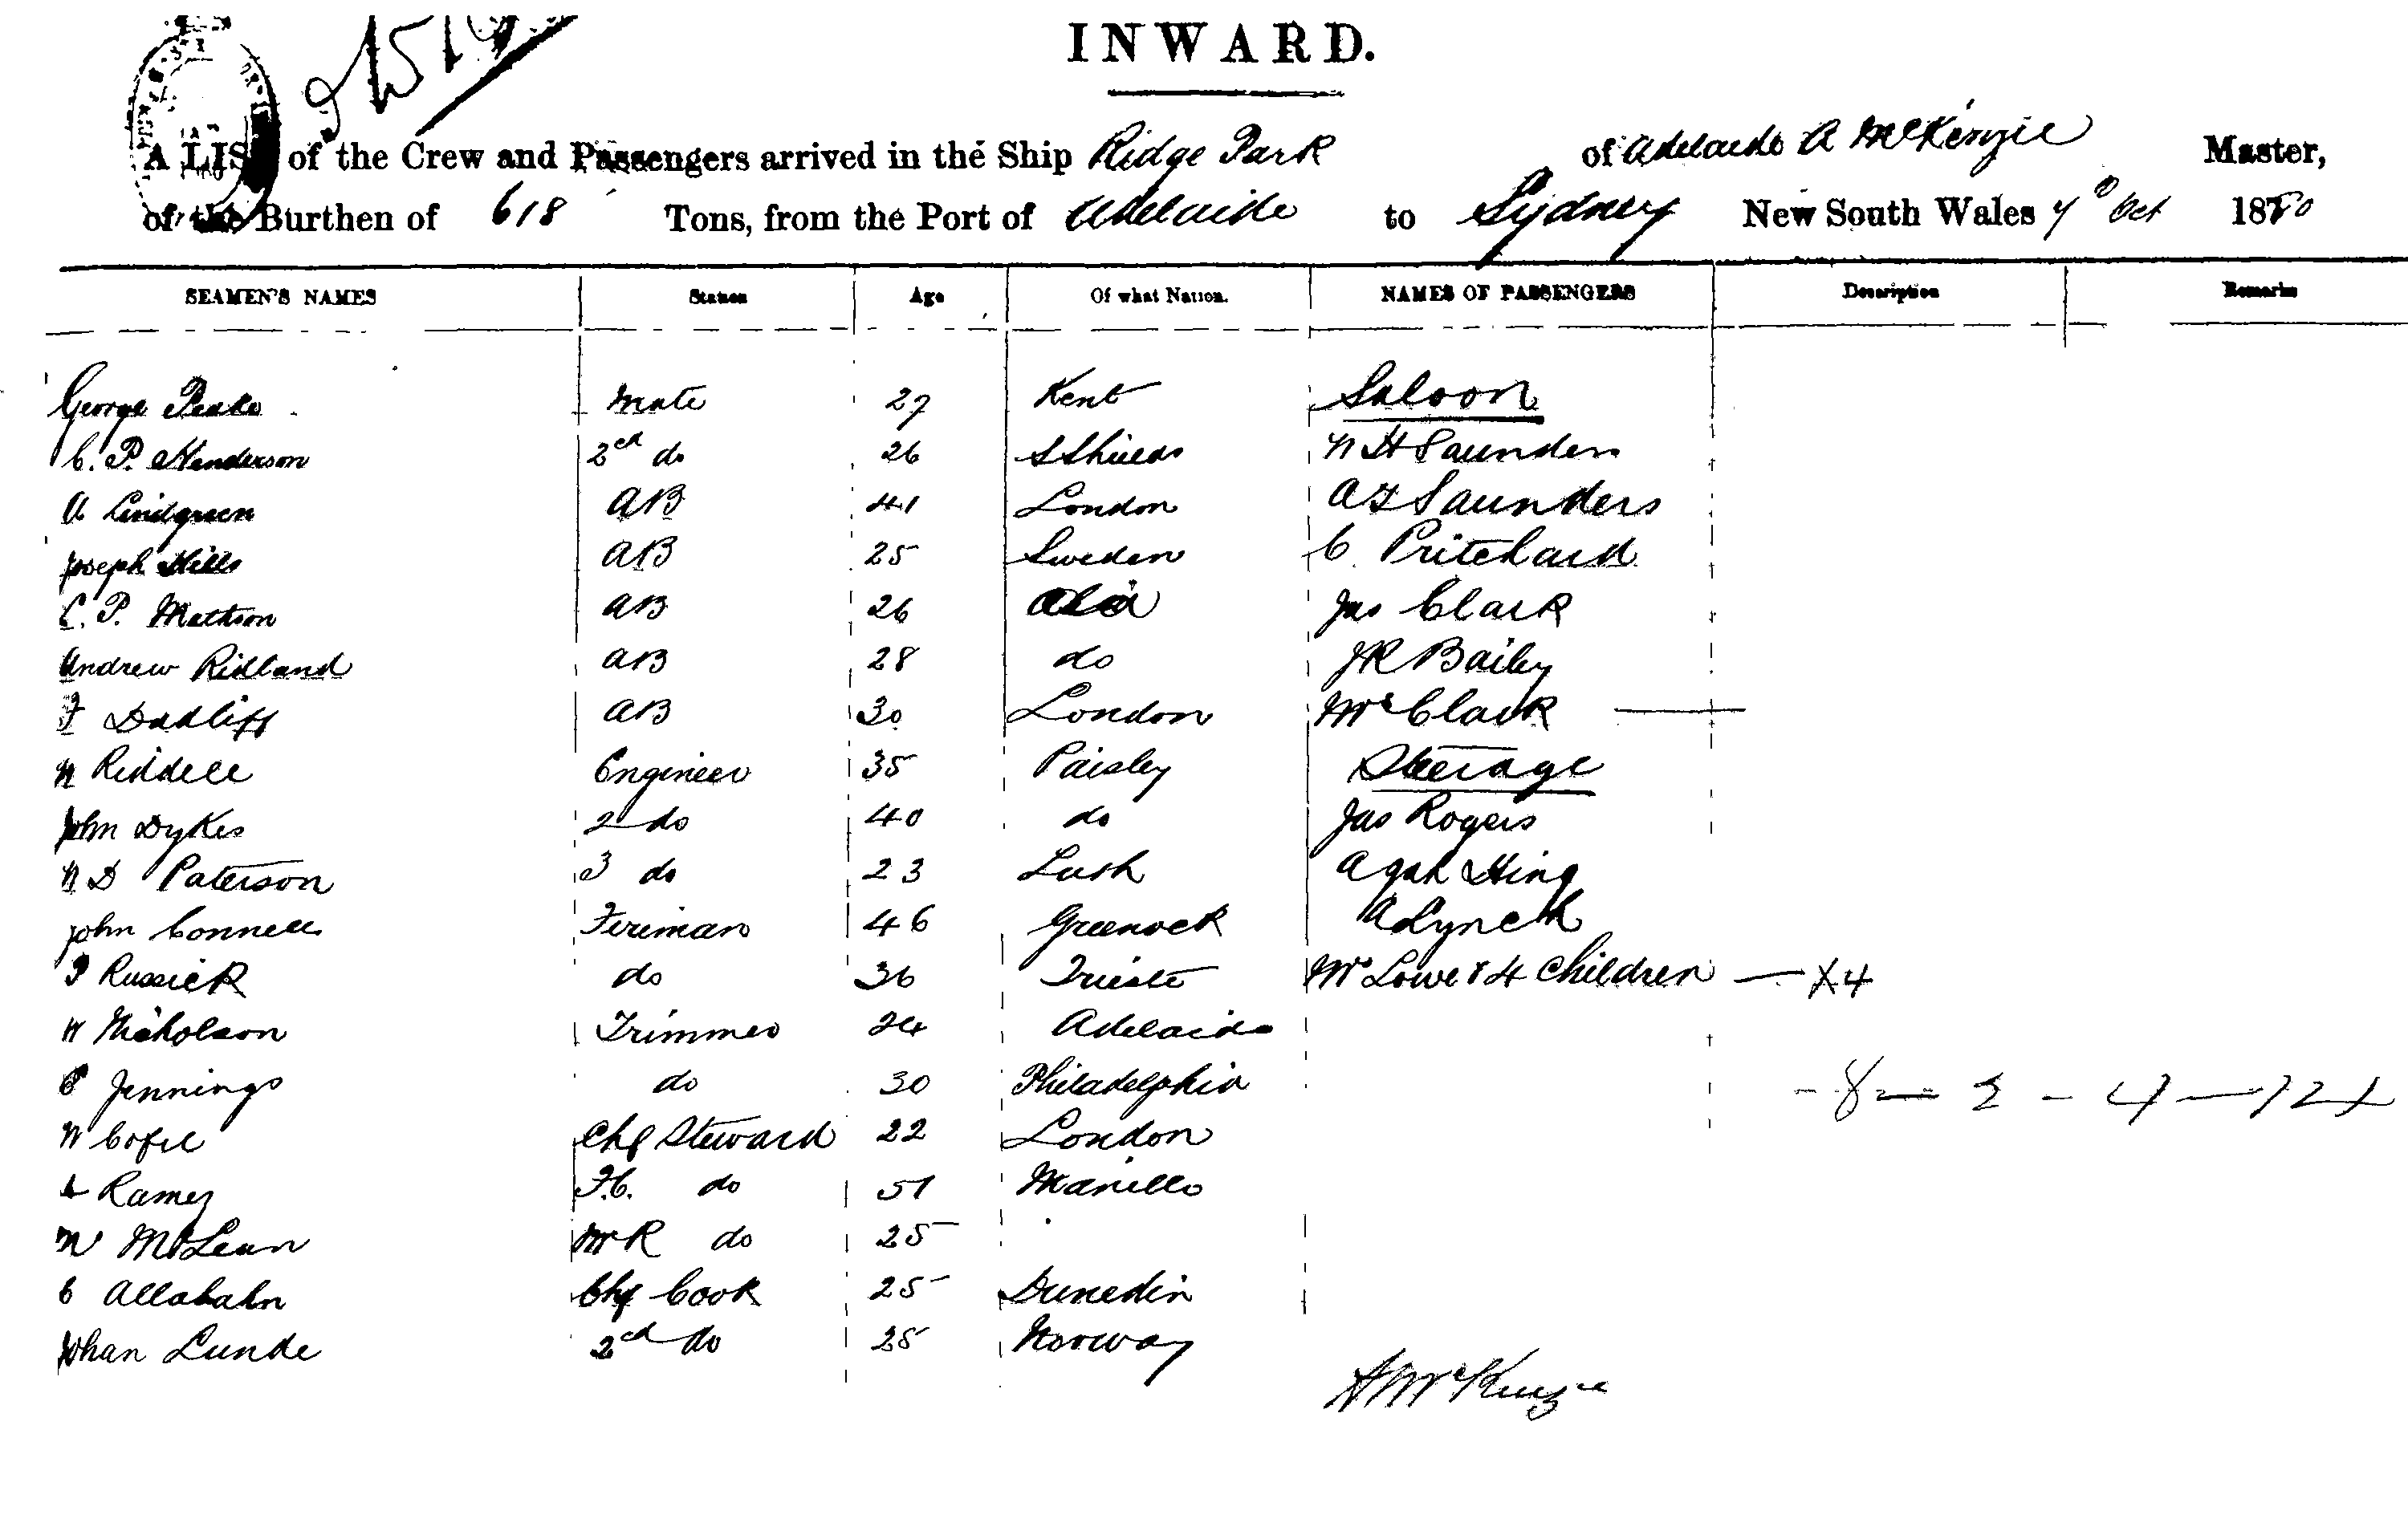 INWARD.
A LIST of the Crew and Passengers arrived in the Ship Ridge Park of Adelaide A McKenzie Master,
of the Burthen of 618 Tons, from the Port of Adelaide to Sydney New South Wales 7th Oct 1880
SEAMEN'S NAMES Station Age Of what Nation. NAMES OF PASSENGERS Description Remarks
George Peake Mate 27 Kent Saloon
C. P. Henderson 2nd do 26 S Shields W H Saunders
A Lindgreen AB 41 London A J Saunders
Joseph Hills AB 25 Sweden C. Pritchard
C. P. Mattson AB 26 Jas Clark
Andrew Ridland AB 28 do JR Bailey
F Dadliff AB 30 London Mrs Clark
W Riddell Engineer 35 Paisley Steerage
John Dykes 2 do 40 do Jas Rogers
W D Paterson 3 do 23 Leith Agah Hing
John Connell Fireman 46 Greenock A Lynch
P Russick do 36 Trieste Mrs Lowe & 4 Children — X4
W Nicholson Trimmer 24 Adelaide
C Jennings do 30 Philadelphia - 8 — 2 - 4 — 12 X
W Cofie Chf Steward 22 London
Ramez F.C. do 51 Manillo
W McLean MR do 25
C Allabahn Chf Cook 25 Dunedin
Johan Lunde 2nd do 25 Norway
A McKenzie